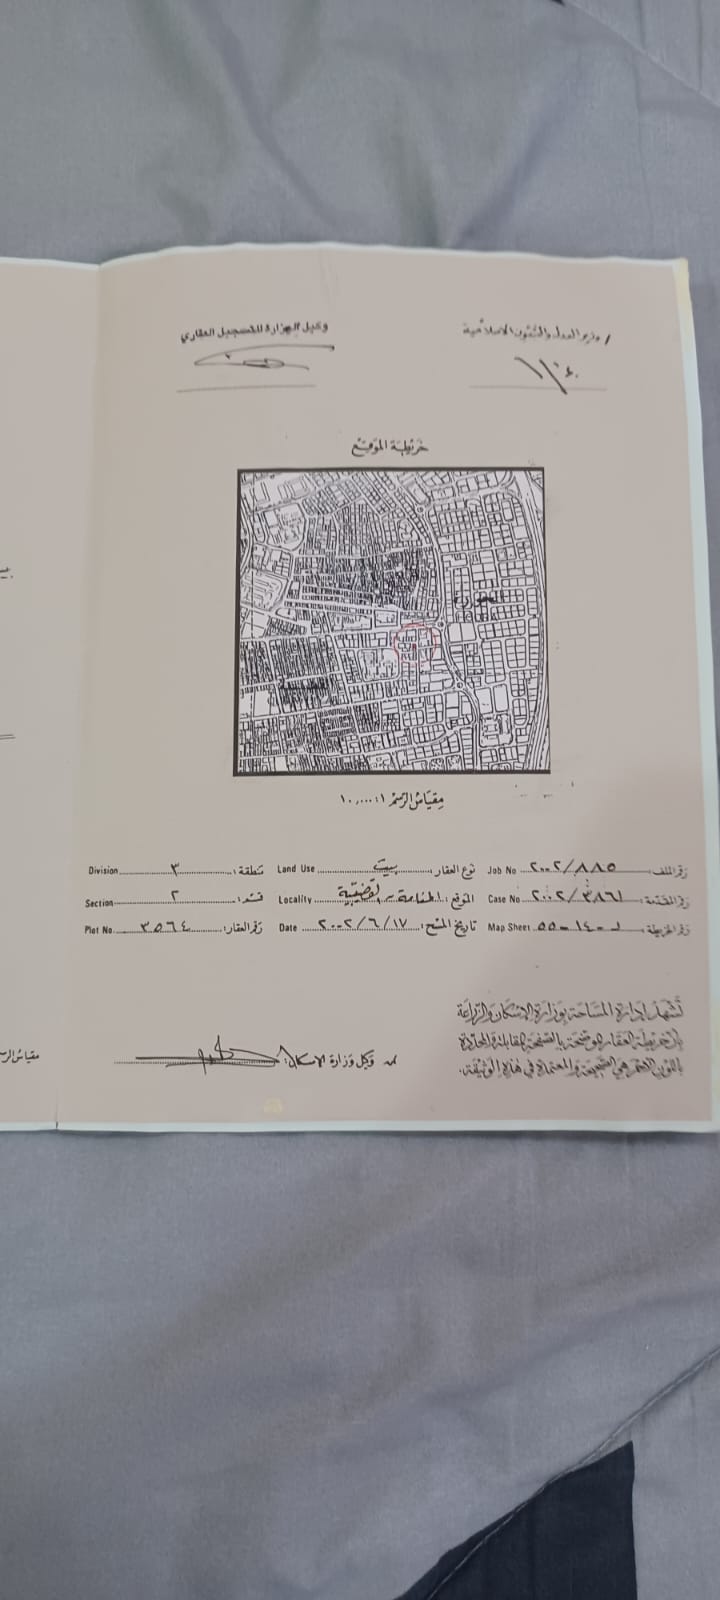 وزير العدل والشئون الإسلامية
وكيل الوزارة للتسجيل العقاري
خريطة الموقع
الحورة
مقياس الرسم ١:١٠,٠٠٠
رقم الملف: ٢٠٠٢/٨٨٥ Job No نوع العقار: بيت Land Use منطقة: ٣ Division
رقم المقدمة: ٢٠٠٢/٣٨٦١ Case No الموقع: المنامة - القضيبية Locality قسم: ٢ Section
رقم الخريطة: ل-١٤-٥٥ Map Sheet تاريخ المسح: ٢٠٠٢/٦/١٧ Date رقم العقار: ٣٥٦٤ Plot No.
تشهد إدارة المساحة بوزارة الإسكان والزراعة
بأن خريطة العقار الموضحة بالصفحة المقابلة والمحددة
باللون الأحمر هي الصحيحة والمعتمدة في هذه الوثيقة.
وكيل وزارة الإسكان
مقياس الرس